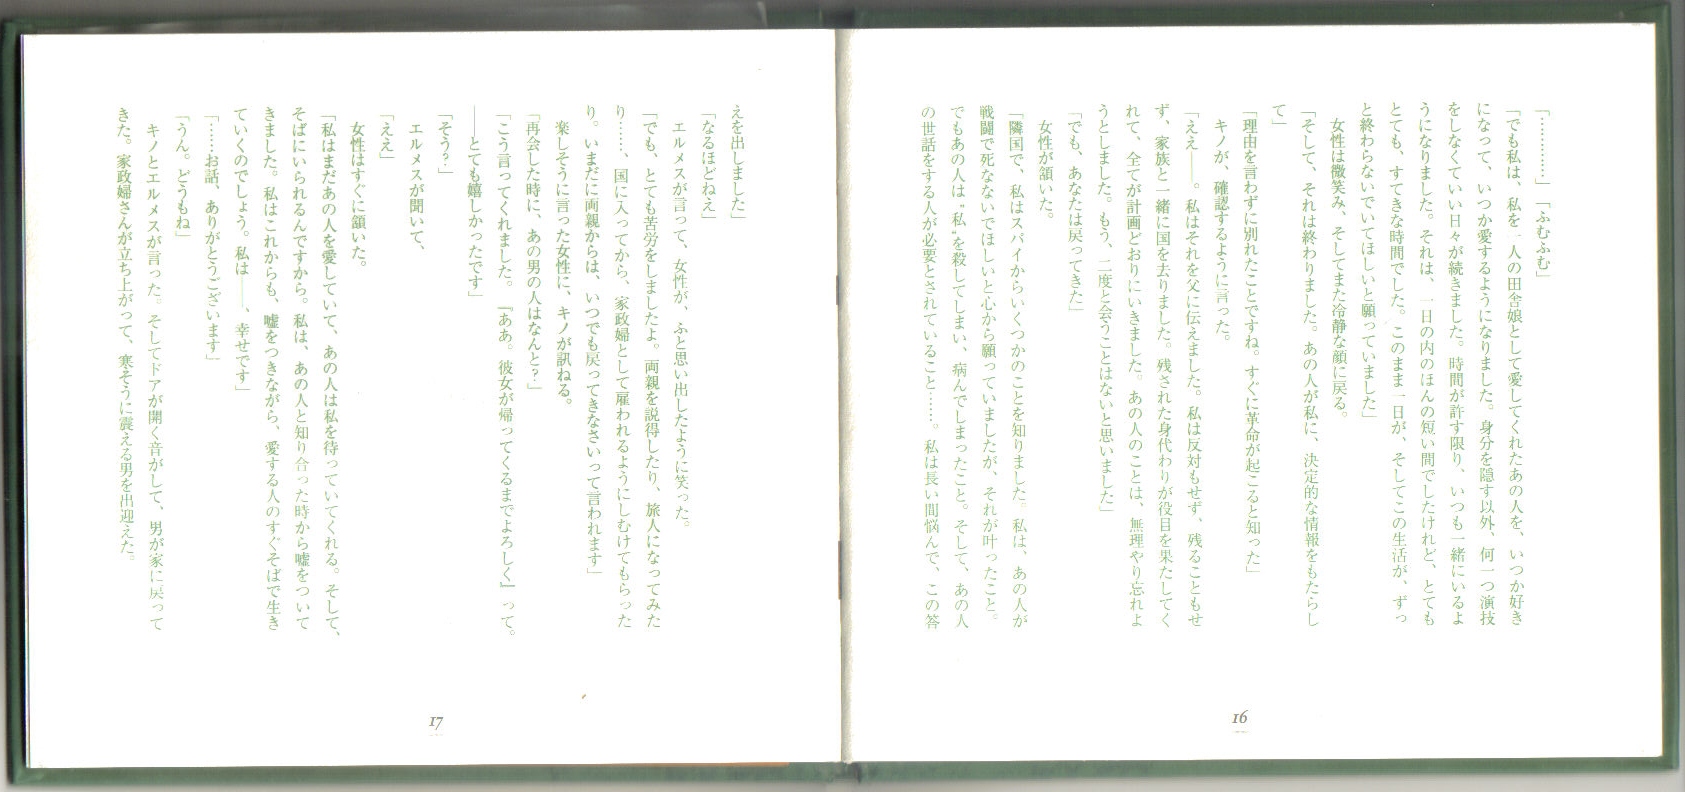 「…………」「ふむふむ」
「でも私は、私を一人の田舎娘として愛してくれたあの人を、いつか好き
になって、いつか愛するようになりました。身分を隠す以外、何一つ演技
をしなくていい日々が続きました。時間が許す限り、いつも一緒にいるよ
うになりました。それは、一日の内のほんの短い間でしたけれど、とても
とても、すてきな時間でした。このまま一日が、そしてこの生活が、ずっ
と終わらないでいてほしいと願っていました」
女性は微笑み、そしてまた冷静な顔に戻る。
「そして、それは終わりました。あの人が私に、決定的な情報をもたらし
て」
「理由を言わずに別れたことですね。すぐに革命が起こると知った」
キノが、確認するように言った。
「ええ――。私はそれを父に伝えました。私は反対もせず、残ることもせ
ず、家族と一緒に国を去りました。残された身代わりが役目を果たしてく
れて、全てが計画どおりにいきました。あの人のことは、無理やり忘れよ
うとしました。もう、二度と会うことはないと思いました」
「でも、あなたは戻ってきた」
女性が頷いた。
「隣国で、私はスパイからいくつかのことを知りました。私は、あの人が
戦闘で死なないでほしいと心から願っていましたが、それが叶ったこと。
でもあの人は〝私〟を殺してしまい、病んでしまったこと。そして、あの人
の世話をする人が必要とされていること……。私は長い間悩んで、この答
16
えを出しました」
「なるほどねえ」
エルメスが言って、女性が、ふと思い出したように笑った。
「でも、とても苦労をしましたよ。両親を説得したり、旅人になってみた
り……、国に入ってから、家政婦として雇われるようにしむけてもらった
り。いまだに両親からは、いつでも戻ってきなさいって言われます」
楽しそうに言った女性に、キノが訊ねる。
「再会した時に、あの男の人はなんと？」
「こう言ってくれました。『ああ。彼女が帰ってくるまでよろしく』って。
――とても嬉しかったです」
「そう？」
エルメスが聞いて、
「ええ」
女性はすぐに頷いた。
「私はまだあの人を愛していて、あの人は私を待っていてくれる。そして、
そばにいられるんですから。私は、あの人と知り合った時から嘘をついて
きました。私はこれからも、嘘をつきながら、愛する人のすぐそばで生き
ていくのでしょう。私は――、幸せです」
「……お話、ありがとうございます」
「うん。どうもね」
キノとエルメスが言った。そしてドアが開く音がして、男が家に戻って
きた。家政婦さんが立ち上がって、寒そうに震える男を出迎えた。
17